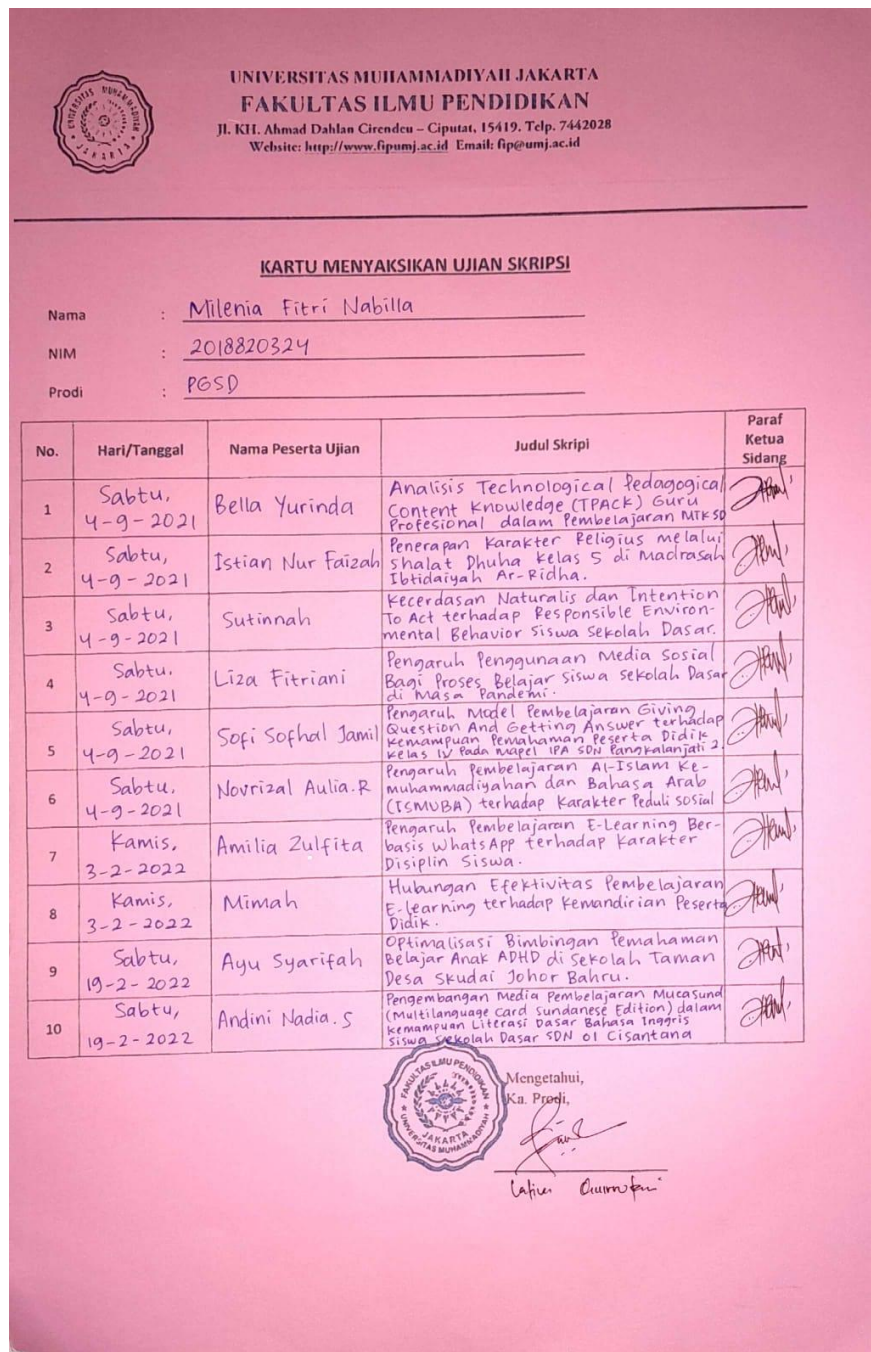 UNIVERSITAS MUHAMMADIYAH JAKARTA
FAKULTAS ILMU PENDIDIKAN
Jl. KH. Ahmad Dahlan Cirendeu – Ciputat, 15419. Telp. 7442028
Website: http://www.fipumj.ac.id Email: fip@umj.ac.id
UNIVERSITAS MUHAMMADIYAH JAKARTA
KARTU MENYAKSIKAN UJIAN SKRIPSI
Nama : Milenia Fitri Nabilla
NIM : 2018820324
Prodi : PGSD
No. Hari/Tanggal Nama Peserta Ujian Judul Skripi Paraf Ketua Sidang
1 Sabtu, 4-9-2021 Bella Yurinda Analisis Technological Pedagogical
Content Knowledge (TPACK) Guru
Profesional dalam Pembelajaran MTK SD
2 Sabtu, 4-9-2021 Istian Nur Faizah Penerapan Karakter Religius melalui
Shalat Dhuha Kelas 5 di Madrasah
Ibtidaiyah Ar-Ridha.
3 Sabtu, 4-9-2021 Sutinnah Kecerdasan Naturalis dan Intention
To Act terhadap Responsible Environ-
mental Behavior Siswa Sekolah Dasar.
4 Sabtu, 4-9-2021 Liza Fitriani Pengaruh Penggunaan Media Sosial
Bagi Proses Belajar Siswa Sekolah Dasar
di Masa Pandemi.
5 Sabtu, 4-9-2021 Sofi Sofhal Jamil Pengaruh Model Pembelajaran Giving
Question And Getting Answer terhadap
Kemampuan Pemahaman Peserta Didik
Kelas IV Pada Mapel IPA SDN Pangkalanjati 2.
6 Sabtu, 4-9-2021 Novrizal Aulia.R Pengaruh Pembelajaran Al-Islam Ke-
muhammadiyahan dan Bahasa Arab
(ISMUBA) terhadap Karakter Peduli sosial
7 Kamis, 3-2-2022 Amilia Zulfita Pengaruh Pembelajaran E-Learning Ber-
basis WhatsApp terhadap Karakter
Disiplin Siswa.
8 Kamis, 3-2-2022 Mimah Hubungan Efektivitas Pembelajaran
E-learning terhadap Kemandirian Peserta
Didik.
9 Sabtu, 19-2-2022 Ayu Syarifah Optimalisasi Bimbingan Pemahaman
Belajar Anak ADHD di Sekolah Taman
Desa Skudai Johor Bahru.
10 Sabtu, 19-2-2022 Andini Nadia.S Pengembangan Media Pembelajaran Mucasund
(Multilanguage Card Sundanese Edition) dalam
kemampuan Literasi Dasar Bahasa Inggris
Siswa Sekolah Dasar SDN 01 Cisantana
FAKULTAS ILMU PENDIDIKAN
UNIVERSITAS MUHAMMADIYAH
JAKARTA
Mengetahui,
Ka. Prodi,